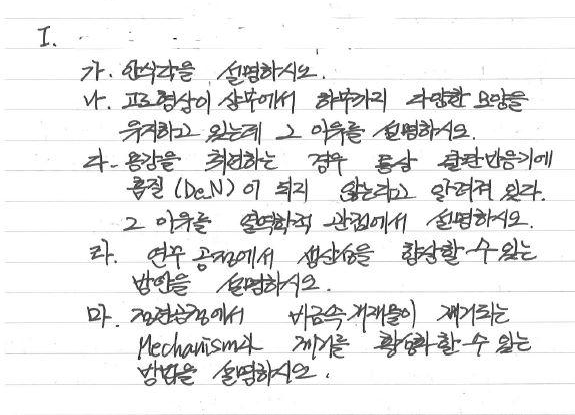 I.
가. 안식각을 설명하시오.
나. 고로형상이 상부에서 하부까지 다양한 모양을
유지하고 있는데 그 이유를 설명하시오.
다. 용강을 취련하는 경우 통상 탈탄반응기에
흡질 (DeN)이 되지 않는다고 알려져 있다.
그 이유를 열역학적 관점에서 설명하시오.
라. 연주 공정에서 생산성을 향상할 수 있는
방안을 설명하시오.
마. 정련공정에서 비금속개재물이 제거되는
Mechanism과 제거를 활성화 할 수 있는
방법을 설명하시오.